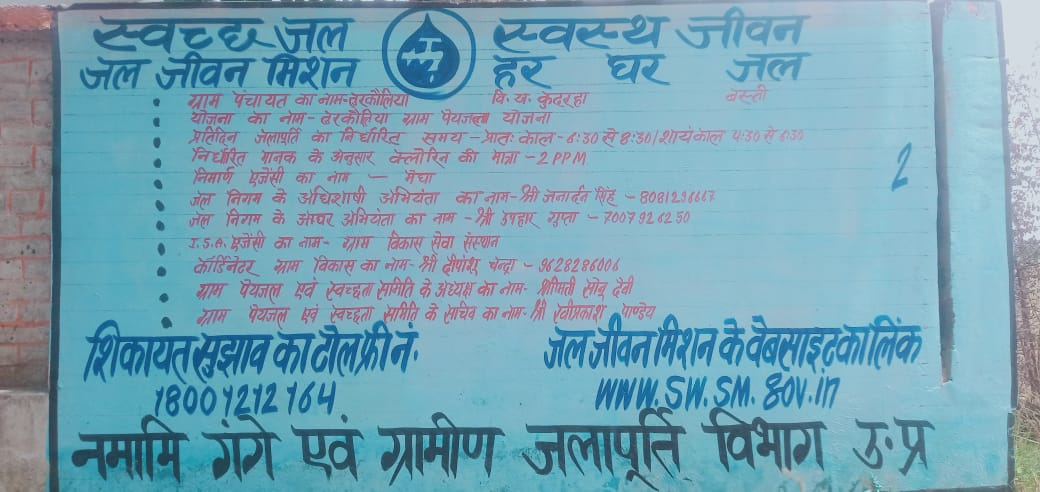 स्वच्छ जल स्वस्थ जीवन
जल जीवन मिशन हर घर जल
ग्राम पंचायत का नाम-तुरकौलिया वि.ख. कुदरहा बस्ती
योजना का नाम- तुरकौलिया ग्राम पेयजल योजना
प्रतिदिन जलापूर्ति का निर्धारित समय - प्रातः काल - 6:30 से 8:30/शायंकाल 4:30 से 6:30
निर्धारित मानक के अनुसार क्लोरिन की मात्रा - 2 PPM
निमार्ण एजेंसी का नाम — मेघा
2
जल निगम के अधिशाषी अभियंता का नाम-श्री जनार्दन सिंह - 8081296667
जल निगम के अवर अभियंता का नाम - श्री उपहार गुप्ता - 7007926250
I.S.A. एजेंसी का नाम- ग्राम विकास सेवा संस्थान
कॉर्डिनेटर ग्राम विकास का नाम- श्री दीपांशू चन्द्रा - 9628286006
ग्राम पेयजल एवं स्वच्छता समिति के अध्यक्ष का नाम- श्रीमती सोनू देवी
ग्राम पेयजल एवं स्वच्छता समिति के सचिव का नाम- श्री रवीप्रकाश पाण्डेय
शिकायत सुझाव का टोल फ्री नं. जल जीवन मिशन के वेबसाइट का लिंक
18001212164 www.sw.sm.gov.in
नमामि गंगे एवं ग्रामीण जलापूर्ति विभाग उ.प्र